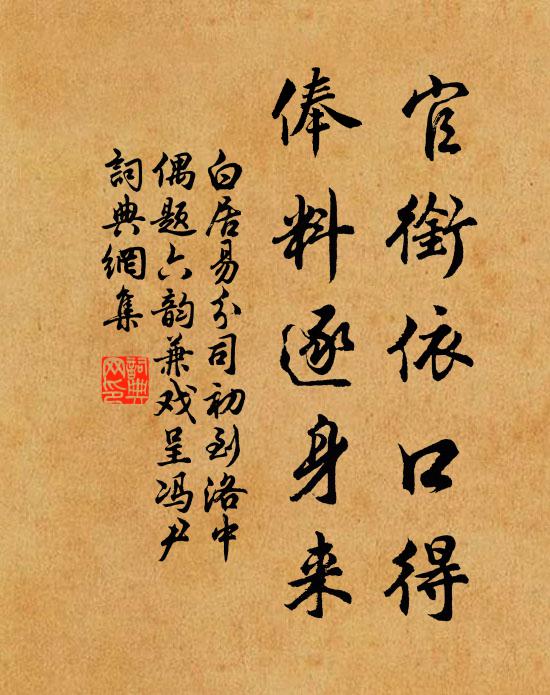 官銜依口得
俸料逐身来
白居易分司初到洛中
偶题六韵兼戏呈冯尹
詞典網集
詞典
网印